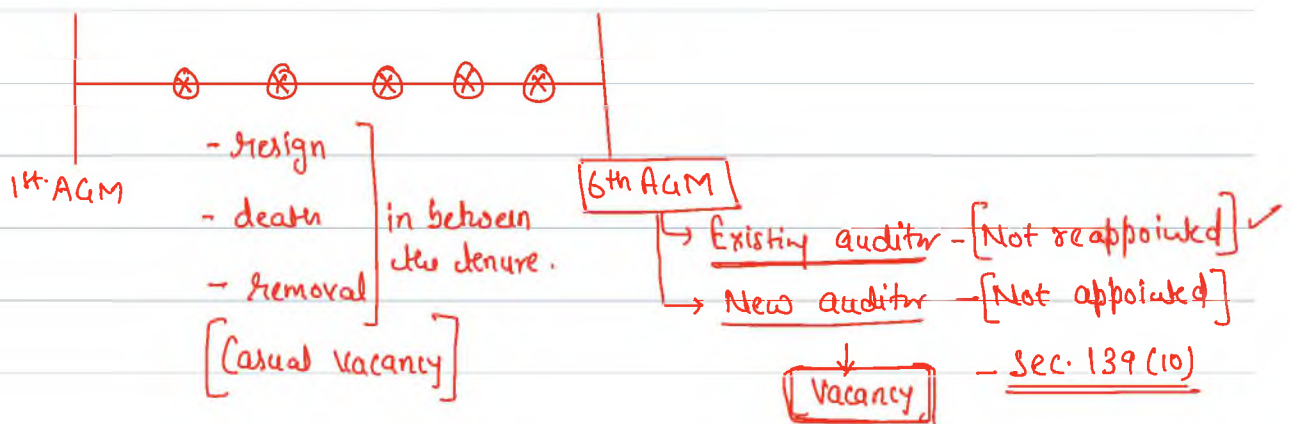 1st. AGM
- resign
- death
- removal
in between
the tenure.
[Casual vacancy]
6th AGM
→ Existing auditor - [Not reappointed] ✓
→ New auditor - [Not appointed]
↓
Vacancy
- Sec. 139 (10)